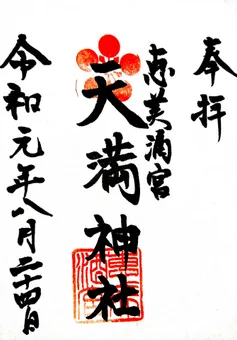 奉拝
恵美須宮
天満神社
令和元年八月二十四日